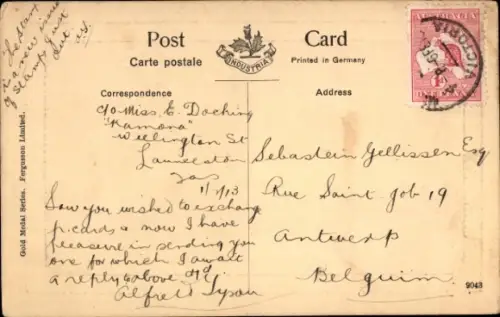 The stamp
is a new issue
of stamp just
out
Post Card
Carte postale
Printed in Germany
INDUSTRIA
Correspondence
Address
c/o Miss E. Docking
"Ramona"
Wellington St
Launceston
Tas
1/7/13
Saw you wished to exchange
p.cards & now I have
pleasure in sending you
one for which I await
a reply to above
Alfred Tyson
Sebastein Gellissen Esq
Rue Saint Job 19
Antwerp
Belguim
Gold Medal Series. Fergusson Limited.
9043
AUSTRALIA
VICTORIA